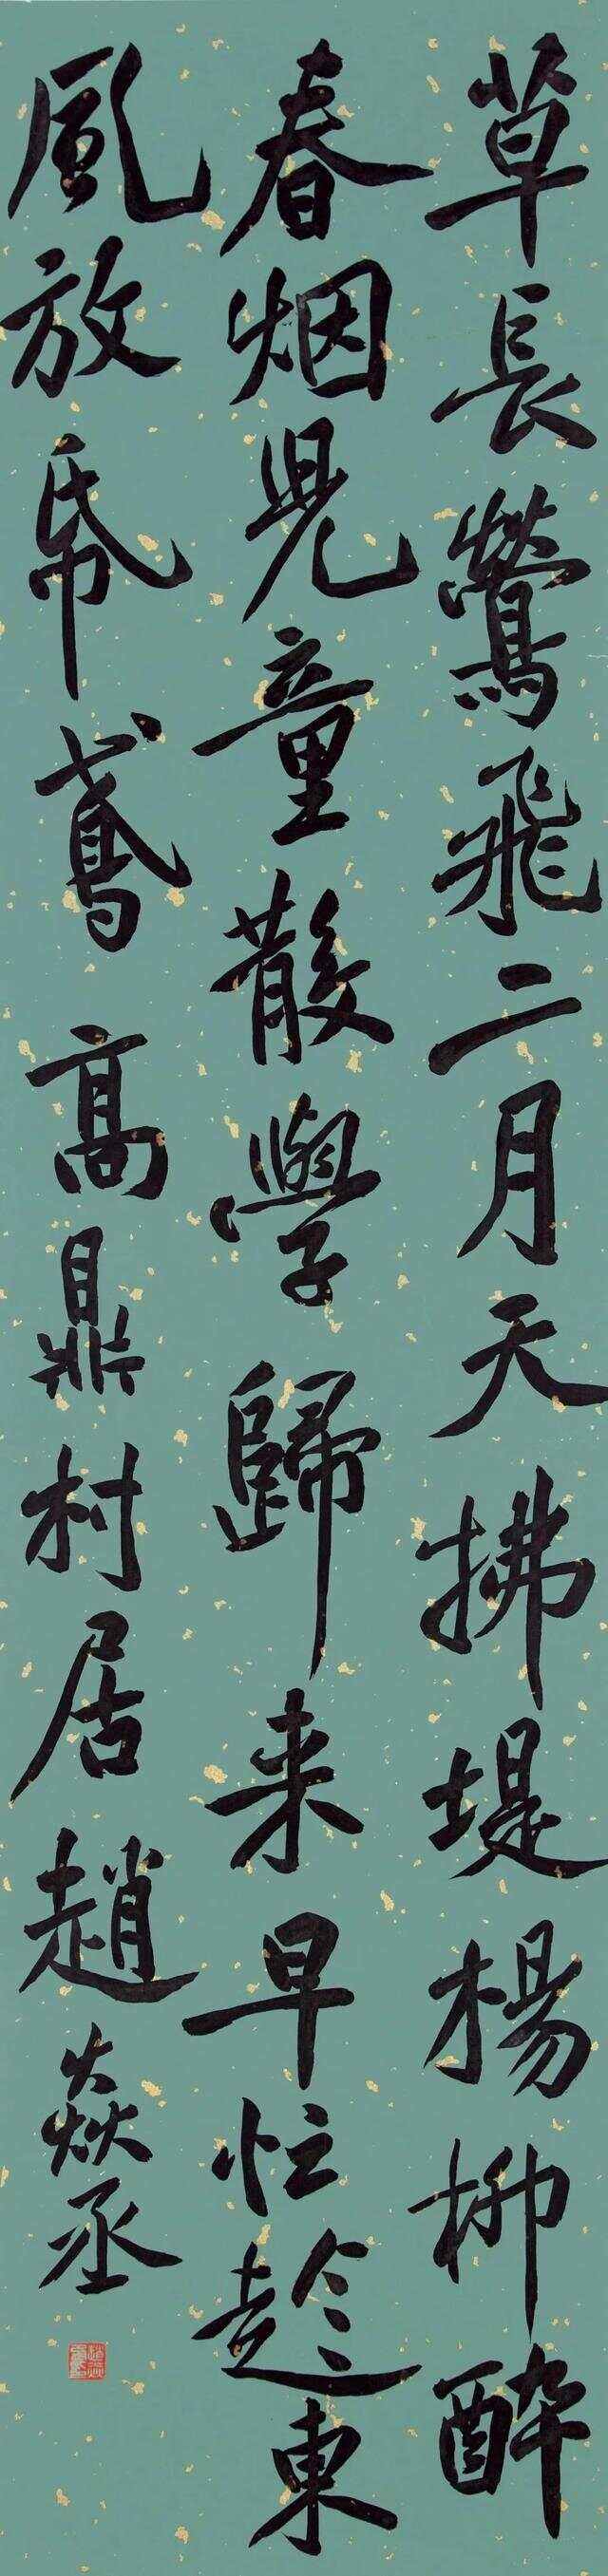 草長鶯飛二月天拂堤楊柳醉
春烟兒童散學歸来早忙趁東
風放帋鳶 高鼎村居趙焱丞